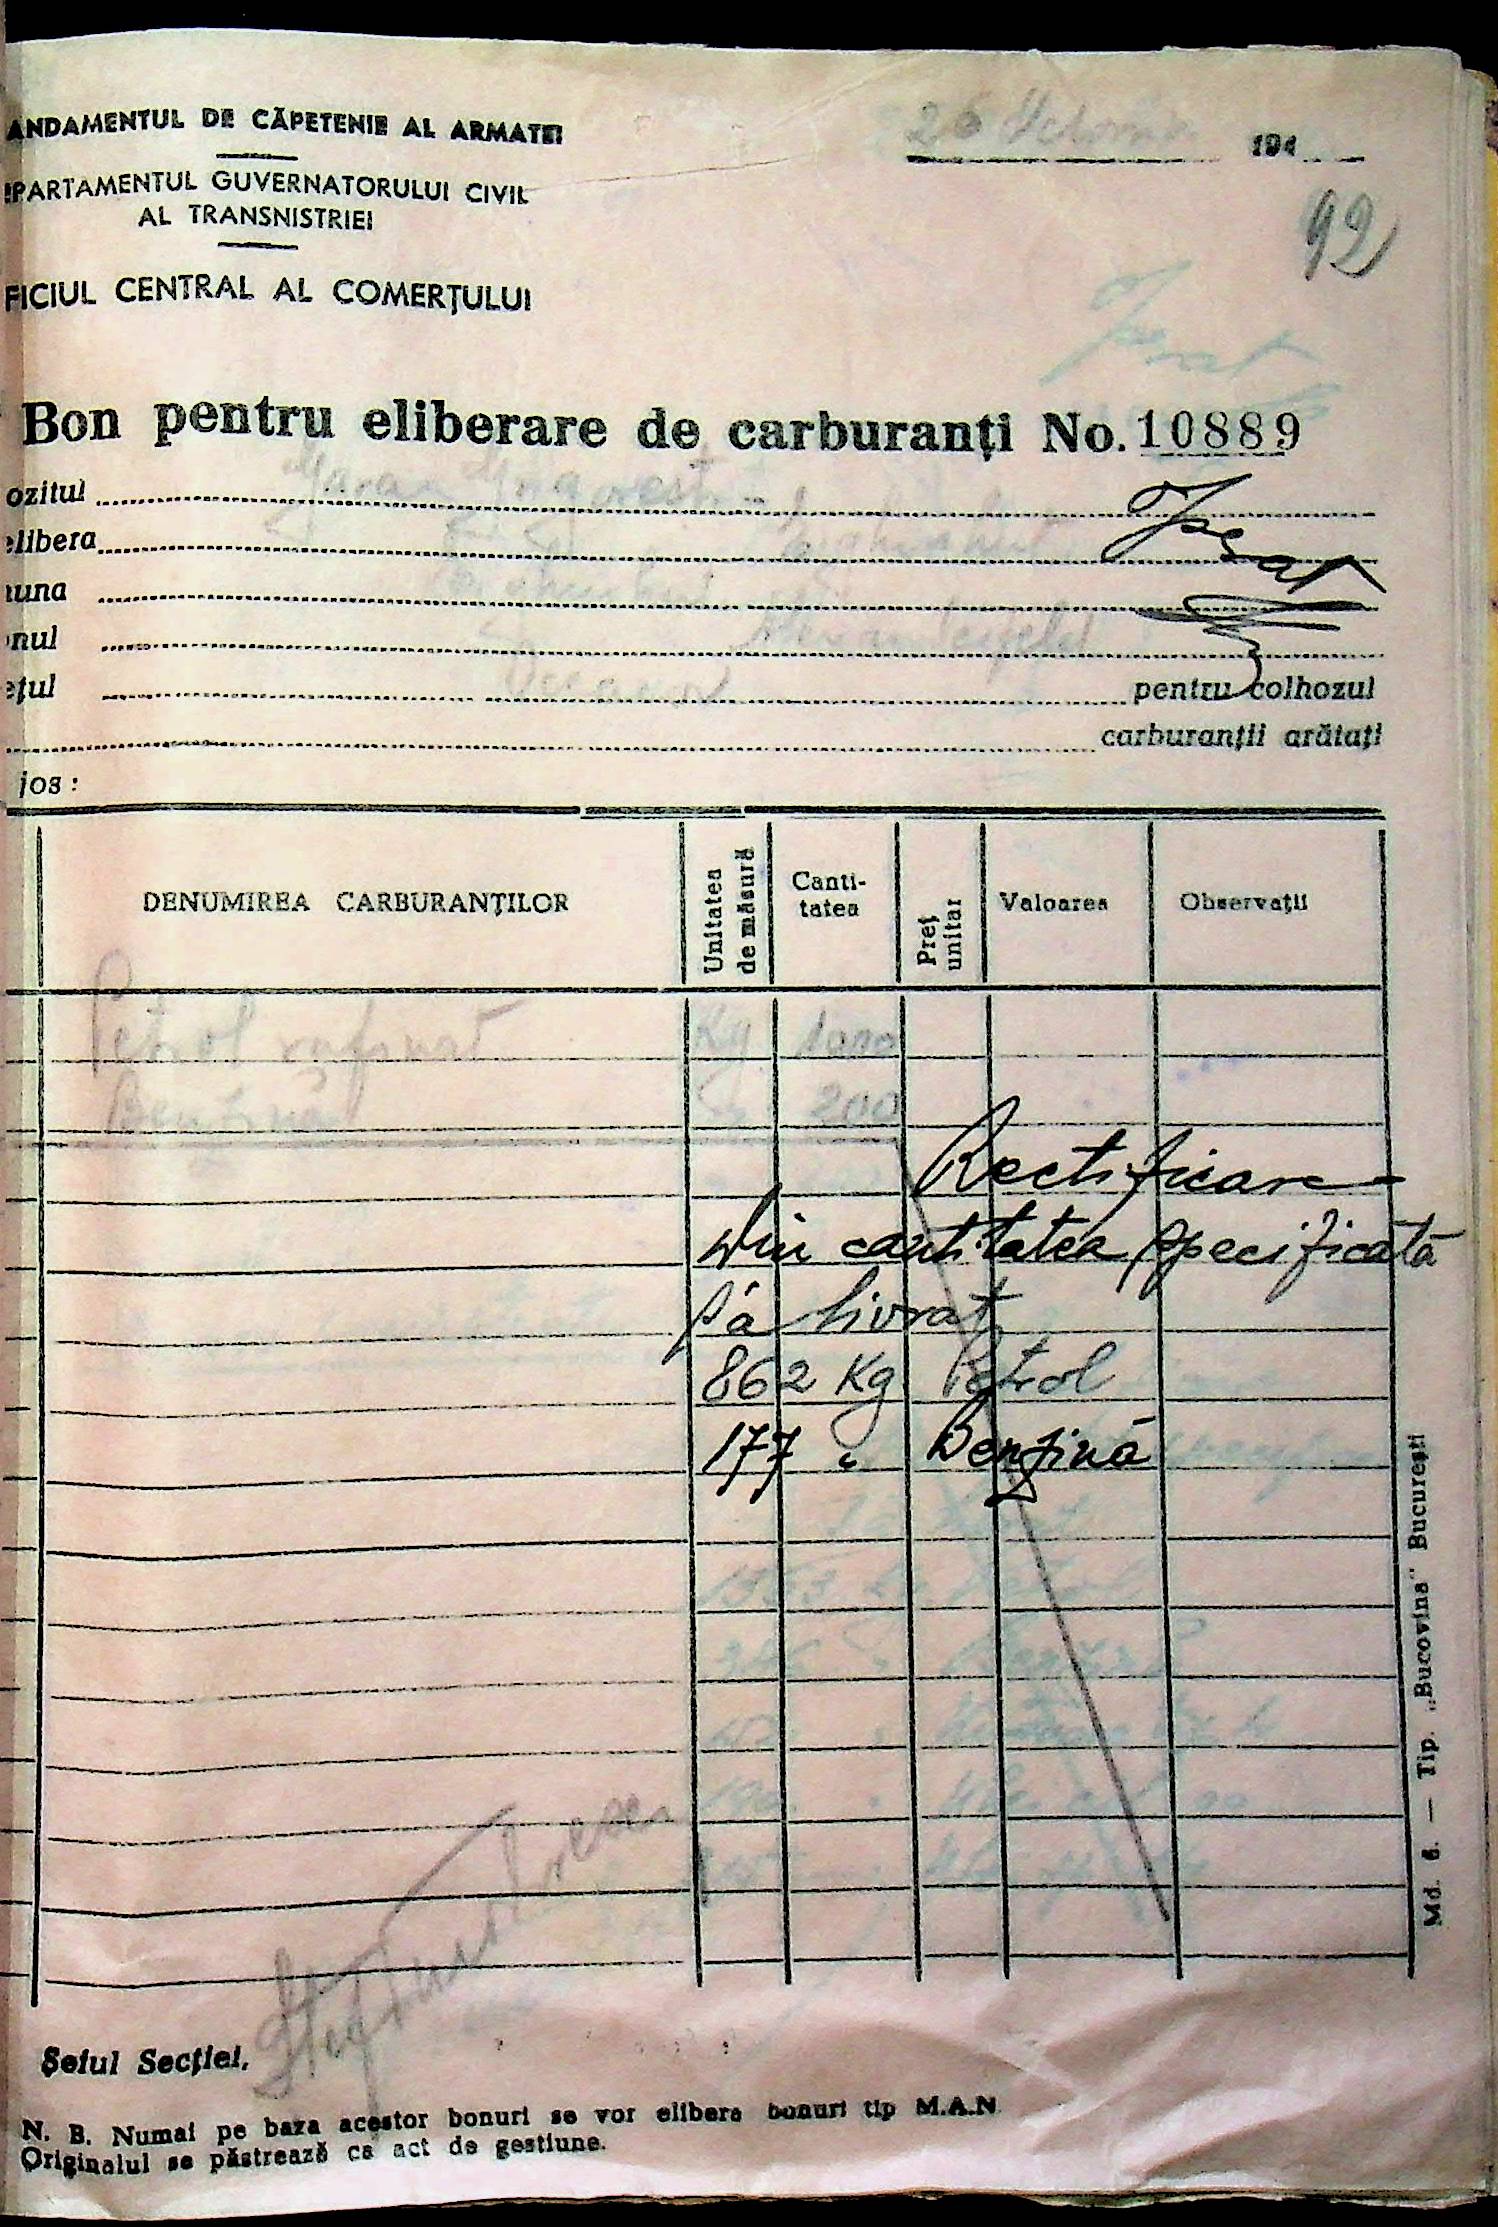 ANDAMENTUL DE CĂPETENIE AL ARMATEI
26 194
PARTAMENTUL GUVERNATORULUI CIVIL
AL TRANSNISTRIEI
92
FICIUL CENTRAL AL COMERȚULUI
Bon pentru eliberare de carburanți No. 10889
ozitul
elibera
una
nul
ețul pentru colhozul
carburanții arătați
jos :
DENUMIREA CARBURANȚILOR Unitatea de măsură Canti-tatea Preț unitar Valoarea Observații
Petrol rafinat Kg 1000
Benzină 200
Rectificare -
Din cantitatea specificată
s'a livrat
862 Kg Petrol
177 " Benzină
Md. 6. — Tip. „Bucovina" București
Șeful Secției,
N. B. Numai pe baza acestor bonuri se vor elibera bonuri tip M.A.N
Originalul se păstrează ca act de gestiune.